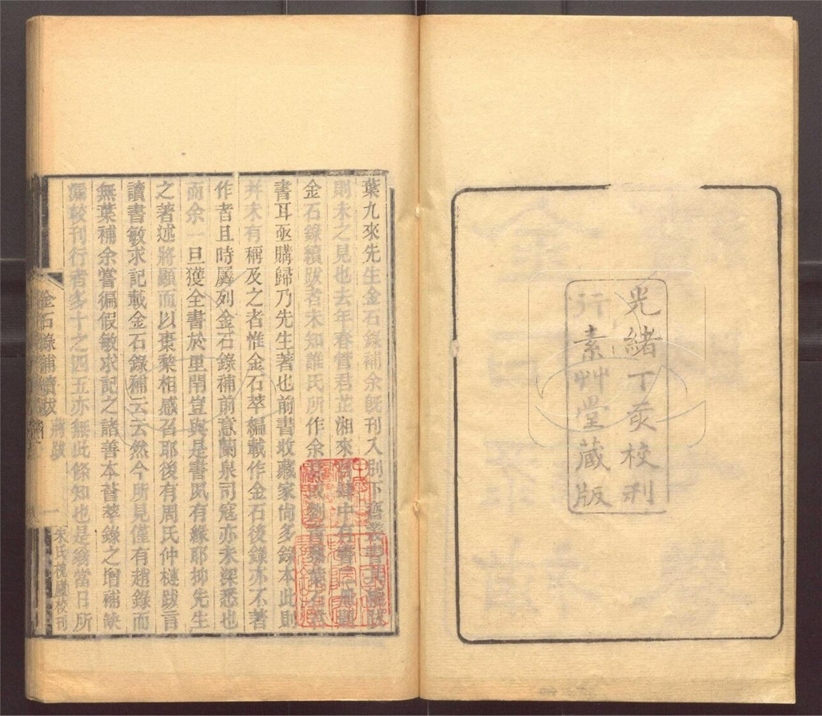 光緒丁亥校刋
行素艸堂藏版
葉九來先生金石錄補余旣刊入別下齋叢書
則未之見也去年春管君芷湘來
金石錄續跋者未知誰氏所作余
書耳亟購歸乃先生著也前書收藏家尙多録本此則
幷未有稱及之者惟金石萃編載作金石後錄亦不著
作者且時屢列金石錄補前意蘭泉司寇亦未深悉也
而余一旦獲全書於里閈豈與是書夙有緣耶抑先生
之著述將顯而以棗棃相感召耶後有周氏仲梿跋言
讀書敏求記載金石錄補云云然今所見僅有趙錄而
無葉補余嘗徧假敏求記之諸善本薈萃錄之增補缺
漏較刊行者多十之四五亦無此條知也是翁當日所
金石錄補續跋
蔣跋
一
朱氏槐廬校刊